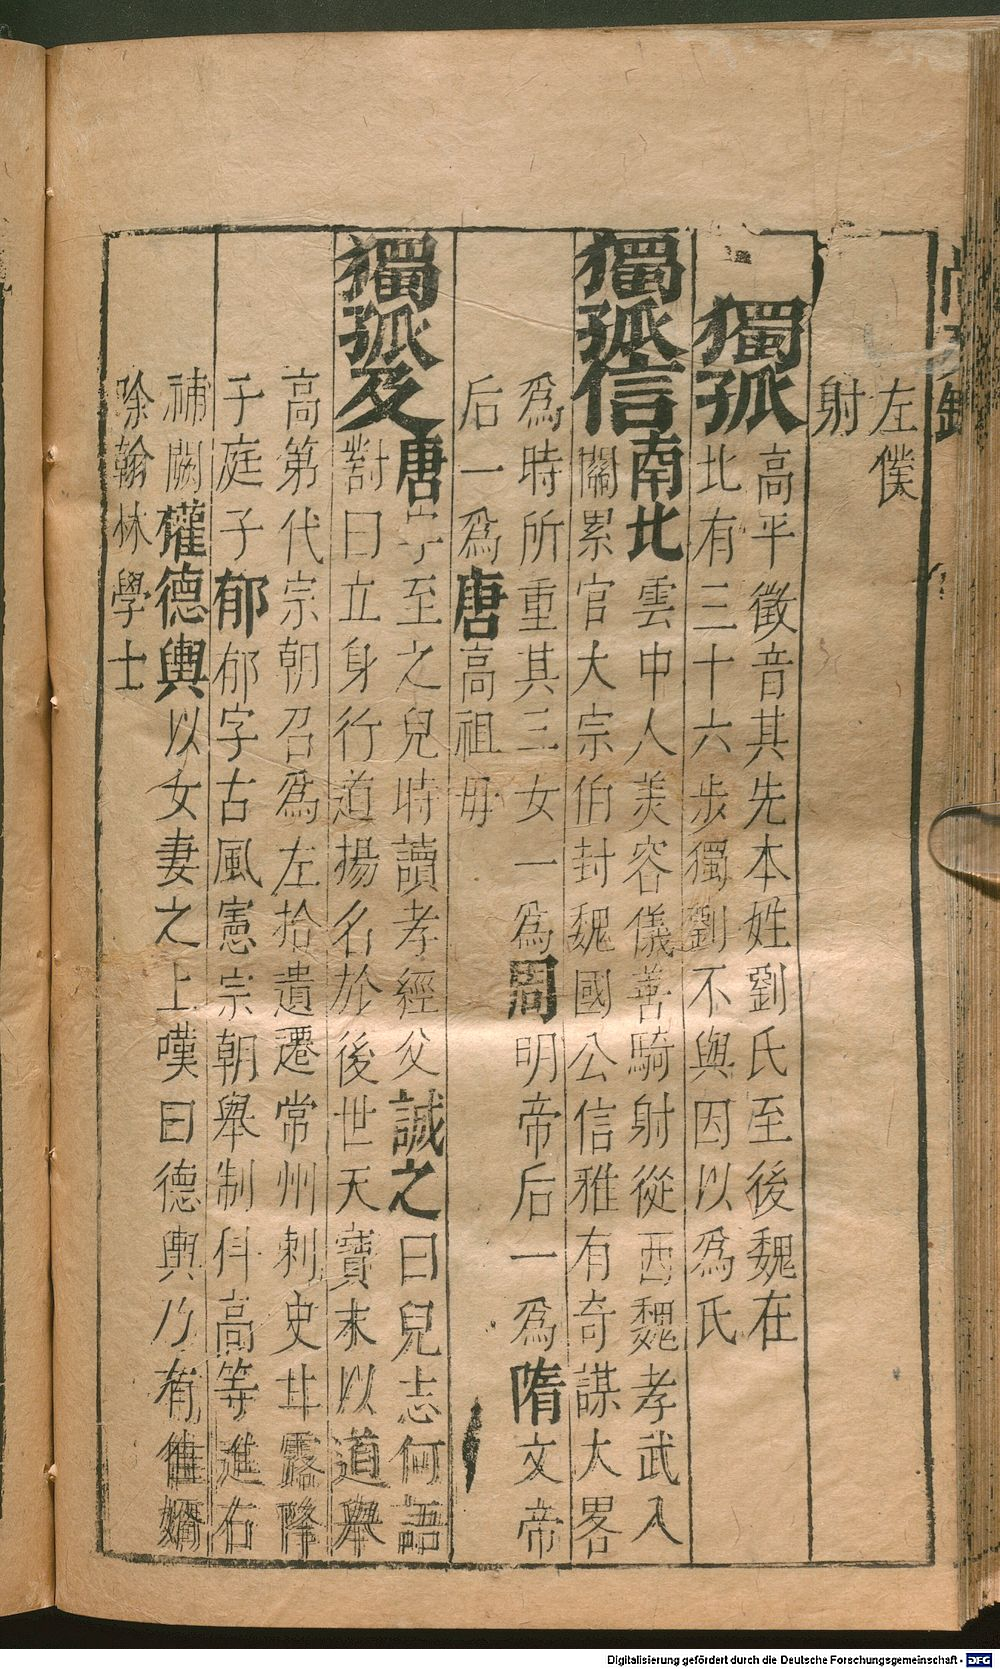 左僕
射
獨孤
高平徵音其先本姓劉氏至後魏在
北有三十六步獨劉不與因以爲氏
獨孤信
南北雲中人美容儀善騎射從西魏孝武入
關累官大宗伯封魏國公信雅有奇謀大畧
爲時所重其三女一爲周明帝后一爲隋文帝
后一爲唐高祖毋
獨孤及
唐字至之兒時讀孝經父誠之曰兒志何語
對曰立身行道揚名於後世天寶末以道舉
高第代宗朝召爲左拾遺遷常州刺史甘露降
子庭子郁郁字古風憲宗朝舉制科高等進右
補闕權德輿以女妻之上嘆曰德輿乃有佳婿
除翰林學士
Digitalisierung gefördert durch die Deutsche Forschungsgemeinschaft - DFG